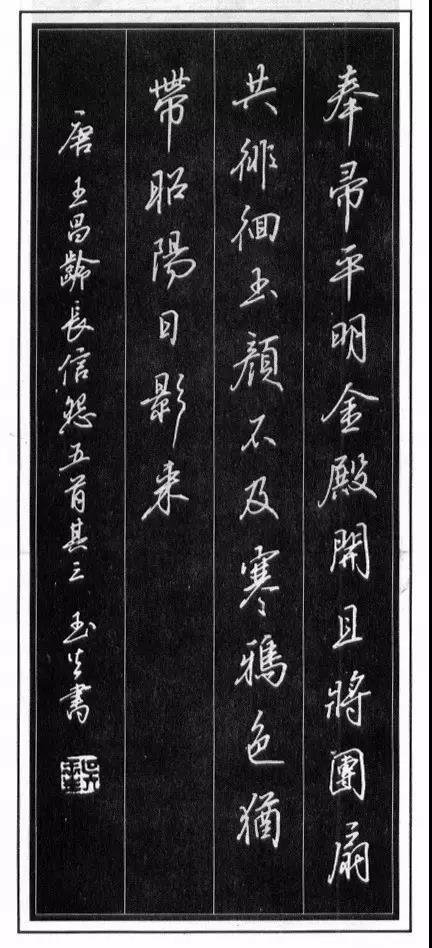 奉帚平明金殿開且將團扇
共徘徊玉顏不及寒鴉色猶
帶昭陽日影來
唐王昌齡長信怨五首其三 玉生書